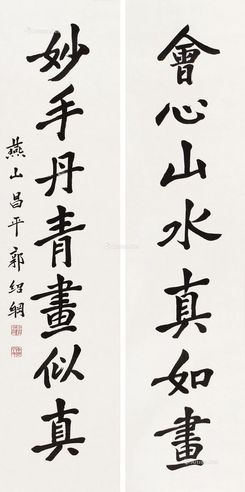 會心山水真如畫
妙手丹青畫似真
燕山昌平郭紹綱